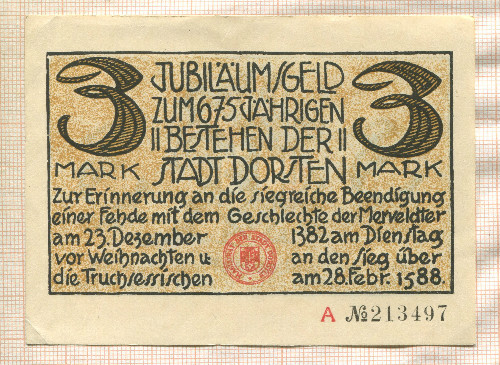 3 JUBILÄUMSGELD 3
ZUM 675 JÄHRIGEN
BESTEHEN DER
MARK STADT DORSTEN MARK
Zur Erinnerung an die siegreiche Beendigung
einer Fehde mit dem Geschlechte der Merveldter
am 23. Dezember 1382 am Dienstag
vor Weihnachten u. an den Sieg über
die Truchsessischen am 28. Febr. 1588.
A № 213497